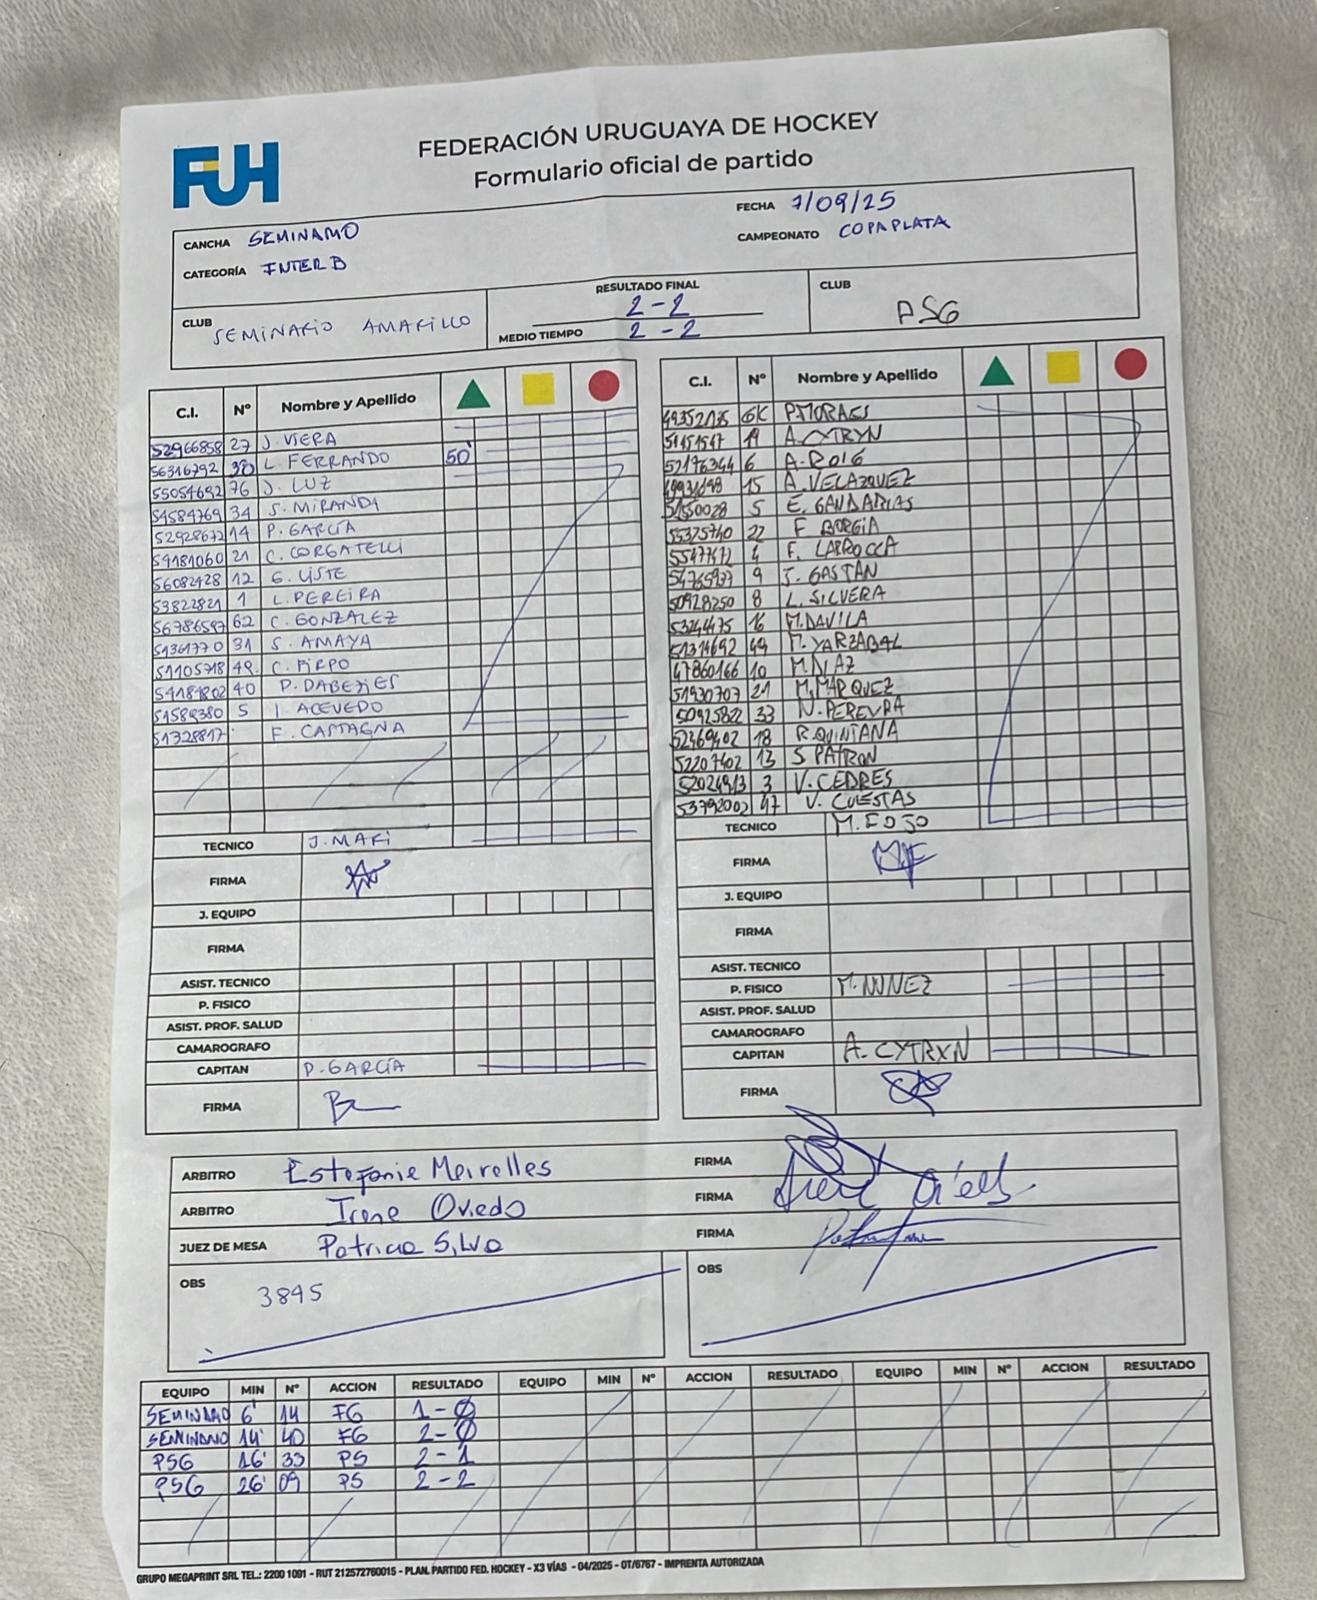 FUH
FEDERACIÓN URUGUAYA DE HOCKEY
Formulario oficial de partido
CANCHA SEMINARIO
FECHA 7/09/25
CATEGORÍA INTER B
CAMPEONATO COPA PLATA
CLUB SEMINARIO AMARILLO
RESULTADO FINAL 2-2
MEDIO TIEMPO 2-2
CLUB PSG
C.I. Nº Nombre y Apellido
52966858 27 J. VIERA
56316792 30 L. FERRANDO 50'
55054692 76 J. LUZ
54584769 34 S. MIRANDA
52928672 14 P. GARCÍA
54181060 21 C. CORGATELLI
56082428 12 G. LISTE
53822821 1 L. PEREIRA
56786597 62 C. GONZALEZ
51361770 31 S. AMAYA
51105718 49 C. PIRPO
54184802 40 P. DABEZIES
51589380 5 I. ACEVEDO
51328817 F. CASTAGNA
TECNICO J. MARI
FIRMA
J. EQUIPO
FIRMA
ASIST. TECNICO
P. FISICO
ASIST. PROF. SALUD
CAMAROGRAFO
CAPITAN P. GARCÍA
FIRMA
C.I. Nº Nombre y Apellido
49352135 GK P. MORAES
51451567 19 A. CYTRYN
52176344 6 A. ROIG
15 A. VELAZQUEZ
5150028 5 E. GANDARIAS
55375740 22 F. BORGIA
55477672 4 F. LARROCCA
54765937 9 J. GASTÁN
50928250 8 L. SILVERA
53244475 16 M. DAVILA
51314692 49 M. YARZABAL
47860166 10 M. DIAZ
51930707 21 M. MARQUEZ
50925822 33 N. PEREYRA
52469402 18 R. QUINTANA
52207402 13 S PATRON
52024913 3 V. CEDRES
53792002 47 V. CUESTAS
TECNICO M. FOJO
FIRMA
J. EQUIPO
FIRMA
ASIST. TECNICO
P. FISICO M. NUNEZ
ASIST. PROF. SALUD
CAMAROGRAFO
CAPITAN A. CYTRYN
FIRMA
ARBITRO Estefanie Meirelles FIRMA
ARBITRO Irene Oviedo FIRMA
JUEZ DE MESA Patricia Silva FIRMA
OBS 3845
OBS
EQUIPO MIN Nº ACCION RESULTADO EQUIPO MIN Nº ACCION RESULTADO EQUIPO MIN Nº ACCION RESULTADO
SEMINARIO 6' 14 FG 1-0
SEMINARIO 14' 40 FG 2-0
PSG 16' 33 PS 2-1
PSG 26' 09 PS 2-2
GRUPO MEGAPRINT SRL TEL.: 2200 1091 - RUT 212572760015 - PLAN. PARTIDO FED. HOCKEY - X3 VÍAS - 04/2025 - OT/6767 - IMPRENTA AUTORIZADA